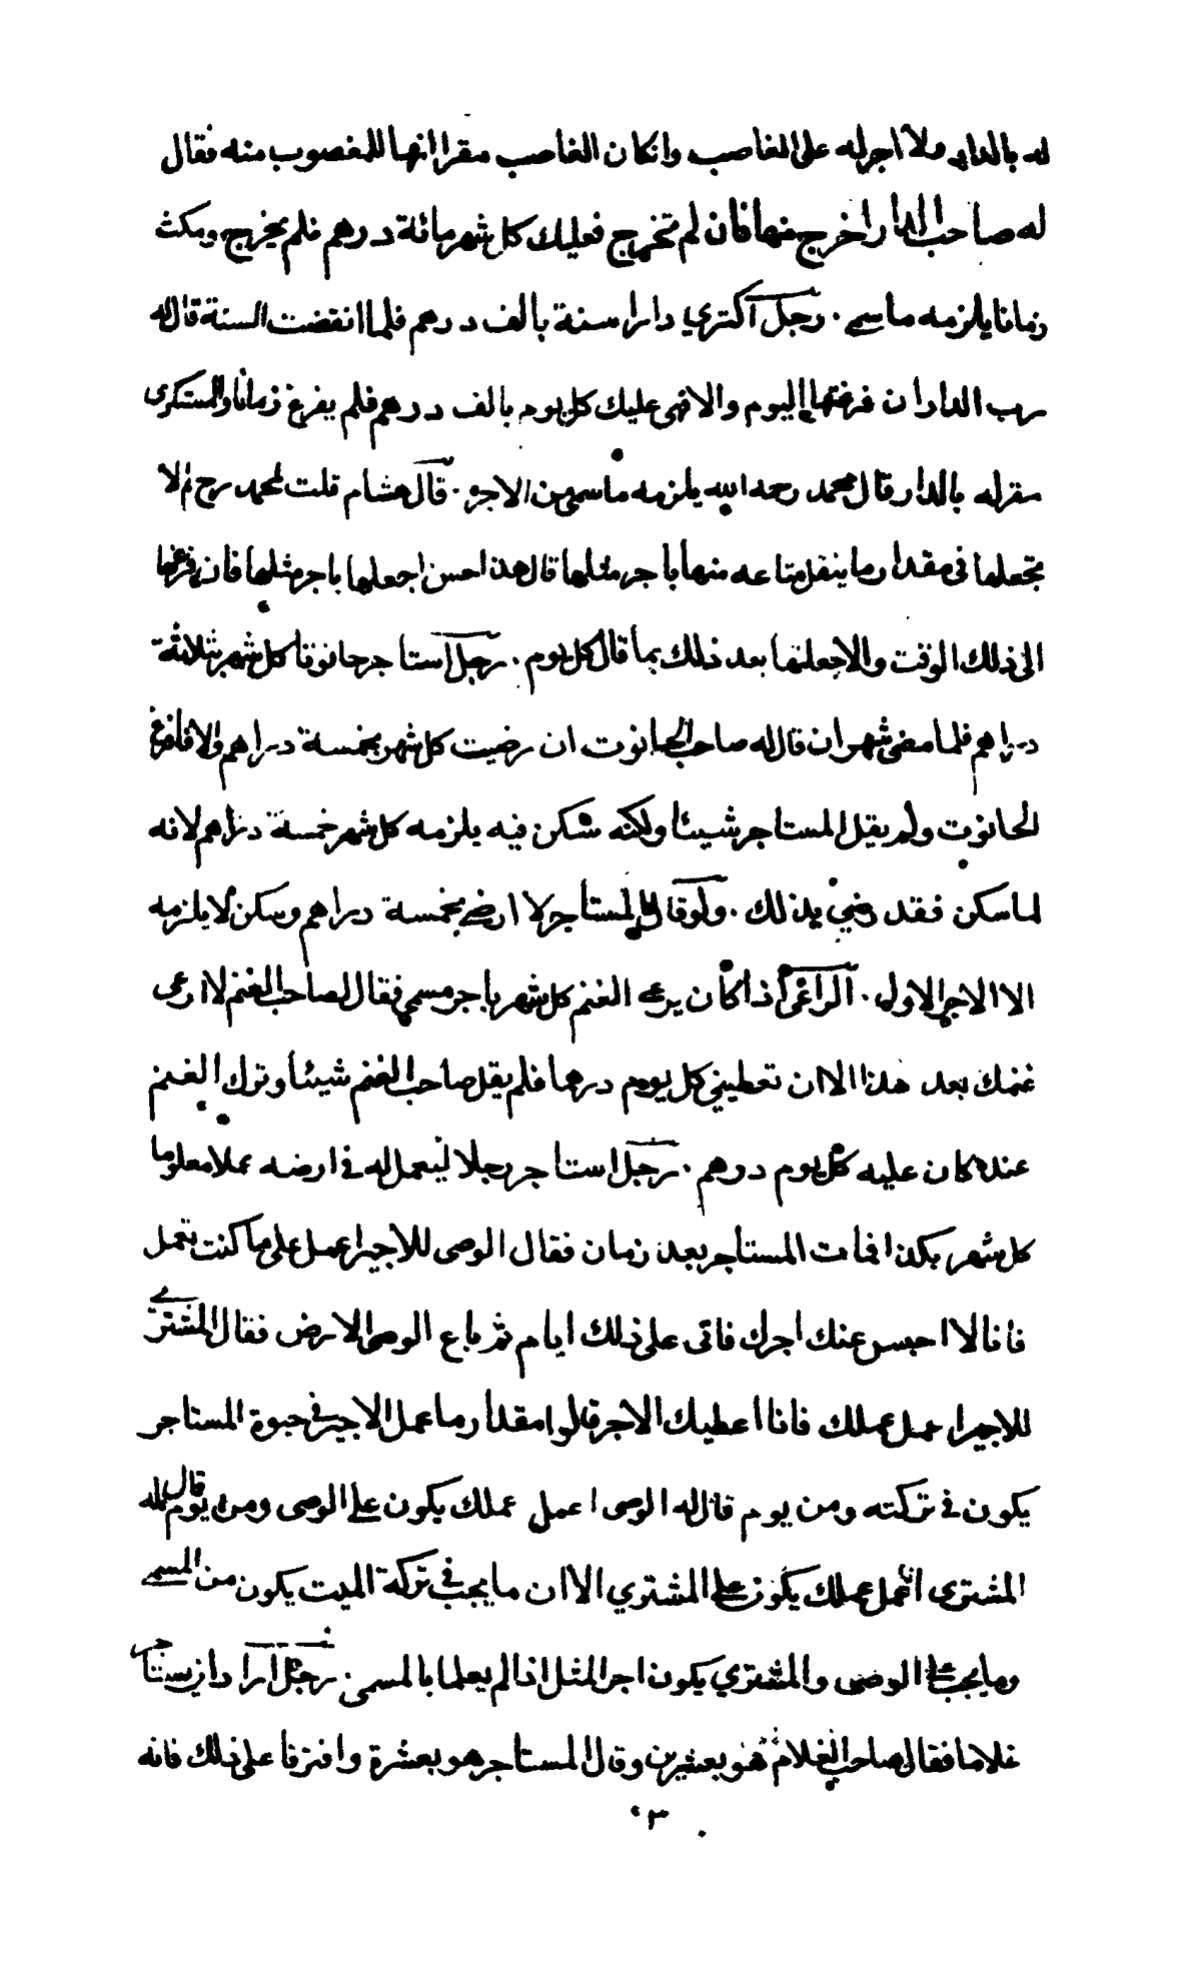 له بالدار ولا اجر له على الغاصب وان كان الغاصب مقرا انها للمغصوب منه فقال
له صاحب الدار اخرج منها فان لم تخرج فعليك كل شهر مائة درهم فلم يخرج ومكث
زمانا يلزمه ما سمى . رجل اكترى دارا سنة بالف درهم فلما انقضت السنة قال له
رب الدار ان فرغتها اليوم والا فهى عليك كل يوم بالف درهم فلم يفرغ زمانا والمستكرى
مقر له بالدار قال محمد رحمه الله يلزمه ما سمى من الاجر . قال هشام قلت لمحمد رح لم لا
تجعلها فى مقدار ما ينقل متاعه منها باجر مثلها قال هذا احسن اجعلها باجر مثلها فان فرغها
الى ذلك الوقت والا جعلتها بعد ذلك بما قال كل يوم . رجل استاجر حانوتا كل شهر بثلاثة
دراهم فلما مضى شهران قال له صاحب الحانوت ان رضيت كل شهر بخمسة دراهم والا فافرغ
الحانوت ولم يقل المستاجر شيئا ولكنه سكن فيه يلزمه كل شهر خمسة دراهم لانه
لما سكن فقد رضي بذلك . ولو قال المستاجر لا ارضى بخمسة دراهم وسكن لا يلزمه
الا الاجر الاول . الراعى اذا كان يرعى الغنم كل شهر باجر مسمى فقال لصاحب الغنم لا ارعى
غنمك بعد هذا الا ان تعطيني كل يوم درهما فلم يقل صاحب الغنم شيئا وترك الغنم
عنده كان عليه كل يوم درهم . رجل استاجر رجلا ليعمل له فى ارضه عملا معلوما
كل شهر بكذا فمات المستاجر بعد زمان فقال الوصى للاجير اعمل على ما كنت تعمل
فانا لا احبس عنك اجرك فاتى على ذلك ايام ثم باع الوصى الارض فقال المشترى
للاجير اعمل عملك فانا اعطيك الاجر قالوا مقدار ما عمل الاجير فى حيوة المستاجر
يكون فى تركته ومن يوم قال له الوصى اعمل عملك يكون على الوصى ومن يوم قال له
المشترى اعمل عملك يكون على المشتري الا ان ما يجب فى تركة الميت يكون من المسمى
وما يجب على الوصى والمشتري يكون اجر المثل اذا لم يعلما بالمسمى . رجل اراد ان يستاجر
غلاما فقال صاحب الغلام هو بعشرين وقال المستاجر هو بعشرة وافترقا على ذلك فانه